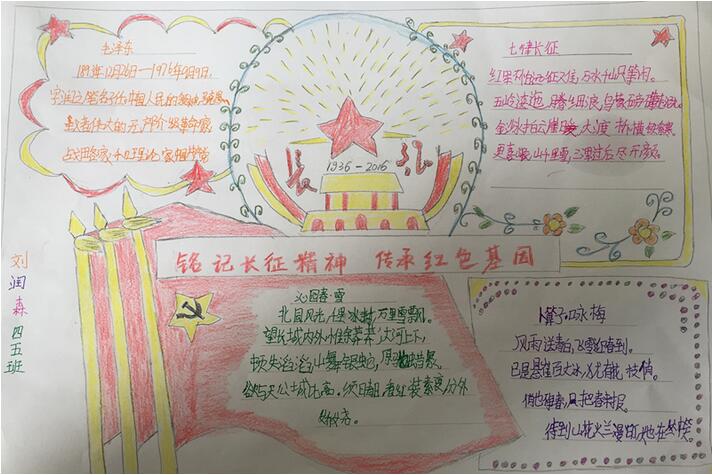 毛泽东
1893年12月26日—1976年9月9日,
战略家和理论家
七律长征
红军不怕远征难 万水千山只等闲。
五岭逶迤 腾细浪, 乌蒙磅礴走泥丸。
金沙水拍云崖暖, 大渡 桥横铁索寒。
更喜岷山千里雪, 三军过后尽开颜。
长 征
1936-2016
铭记长征精神 传承红色基因
沁园春·雪
北国风光, 千里冰封, 万里雪飘。
望长城内外, 惟余莽莽, 大河上下,
顿失滔滔, 山舞银蛇, 原驰蜡象,
欲与天公试比高。须晴日, 看红装素裹, 分外
妖娆。
卜算子·咏梅
风雨送春归, 飞雪迎春到。
已是悬崖百丈冰, 犹有花枝俏。
俏也不争春, 只把春来报。
待到山花烂漫时, 她在丛中笑。
刘润森 四五班